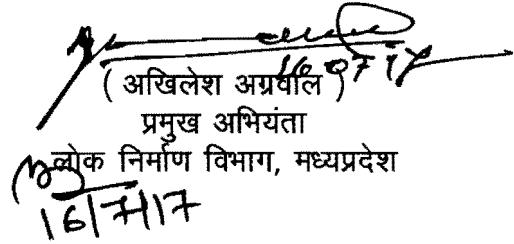 16.07.17
( अखिलेश अग्रवाल )
प्रमुख अभियंता
लोक निर्माण विभाग, मध्यप्रदेश
16/7/17